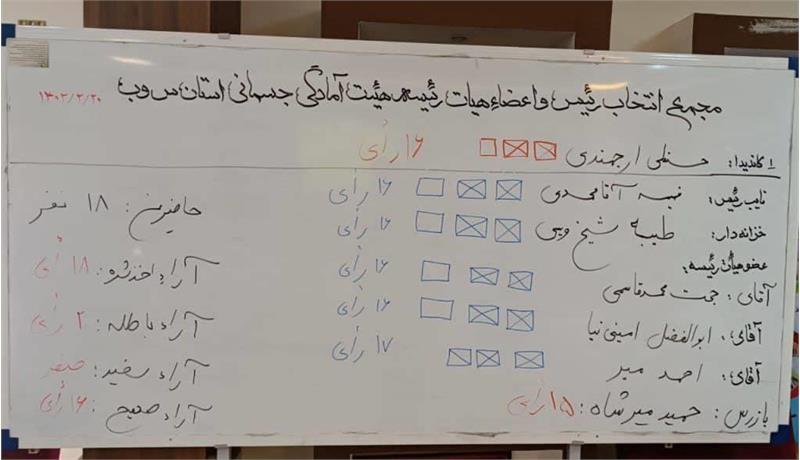 مجمع انتخاب رئیس و اعضاء هیات رئیسه هیئت آمادگی جسمانی استان س و ب ۱۴۰۲/۲/۲۰
۱ کاندیدا: حسنعلی ارجمندی ۱۶ رأی
نایب رئیس: نفیسه آقامحمدی ۱۶ رأی
خزانه دار: طیبه شیخ ویسی ۱۶ رأی
عضو هیات رئیسه:
آقای: حجت محمدقاسمی ۱۶ رأی
آقای: ابوالفضل امینی نیا ۱۶ رأی
آقای: احمد میر ۱۷ رأی
بازرس: حمید میرشاه: ۱۵ رأی
حاضرین: ۱۸ نفر
آراء اخذ شده: ۱۸ رأی
آراء باطله: ۲ رأی
آراء سفید: صفر
آراء صحیح: ۱۶ رأی